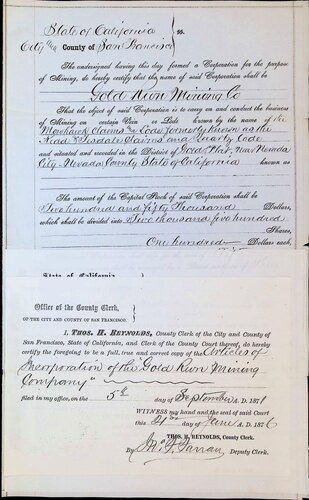 State of California
City and County of San Francisco } ss.
The undersigned having this day formed a Corporation for the purpose
of Mining, do hereby certify that the name of said Corporation shall
be
Gold Run Mining Co
That the object of said Corporation is to carry on and conduct the business
of Mining on certain Vein or Lode known by the name of the
Mowhawk Claims and Lode formerly known as the
Nead & Tisdale Claims and Quartz Lode
and situated and recorded in the District of Gold Flat, near Nevada
City Nevada County State of California known as
The amount of the Capital Stock of said Corporation shall be
Two hundred and fifty Thousand Dollars,
which shall be divided into Two thousand five hundred
Shares,
One hundred Dollars each,
State of California
Office of the County Clerk,
OF THE CITY AND COUNTY OF SAN FRANCISCO.
I, THOS. H. REYNOLDS, County Clerk of the City and County of
San Francisco, State of California, and Clerk of the County Court thereof, do hereby
certify the foregoing to be a full, true and correct copy of the Articles of
Incorporation of the "Gold Run Mining
Company"
filed in my office, on the 5th day of September A. D. 1871
WITNESS my hand and the seal of said Court
this 21st day of June A. D. 1876
THOS. H. REYNOLDS, County Clerk.
By Deputy Clerk.